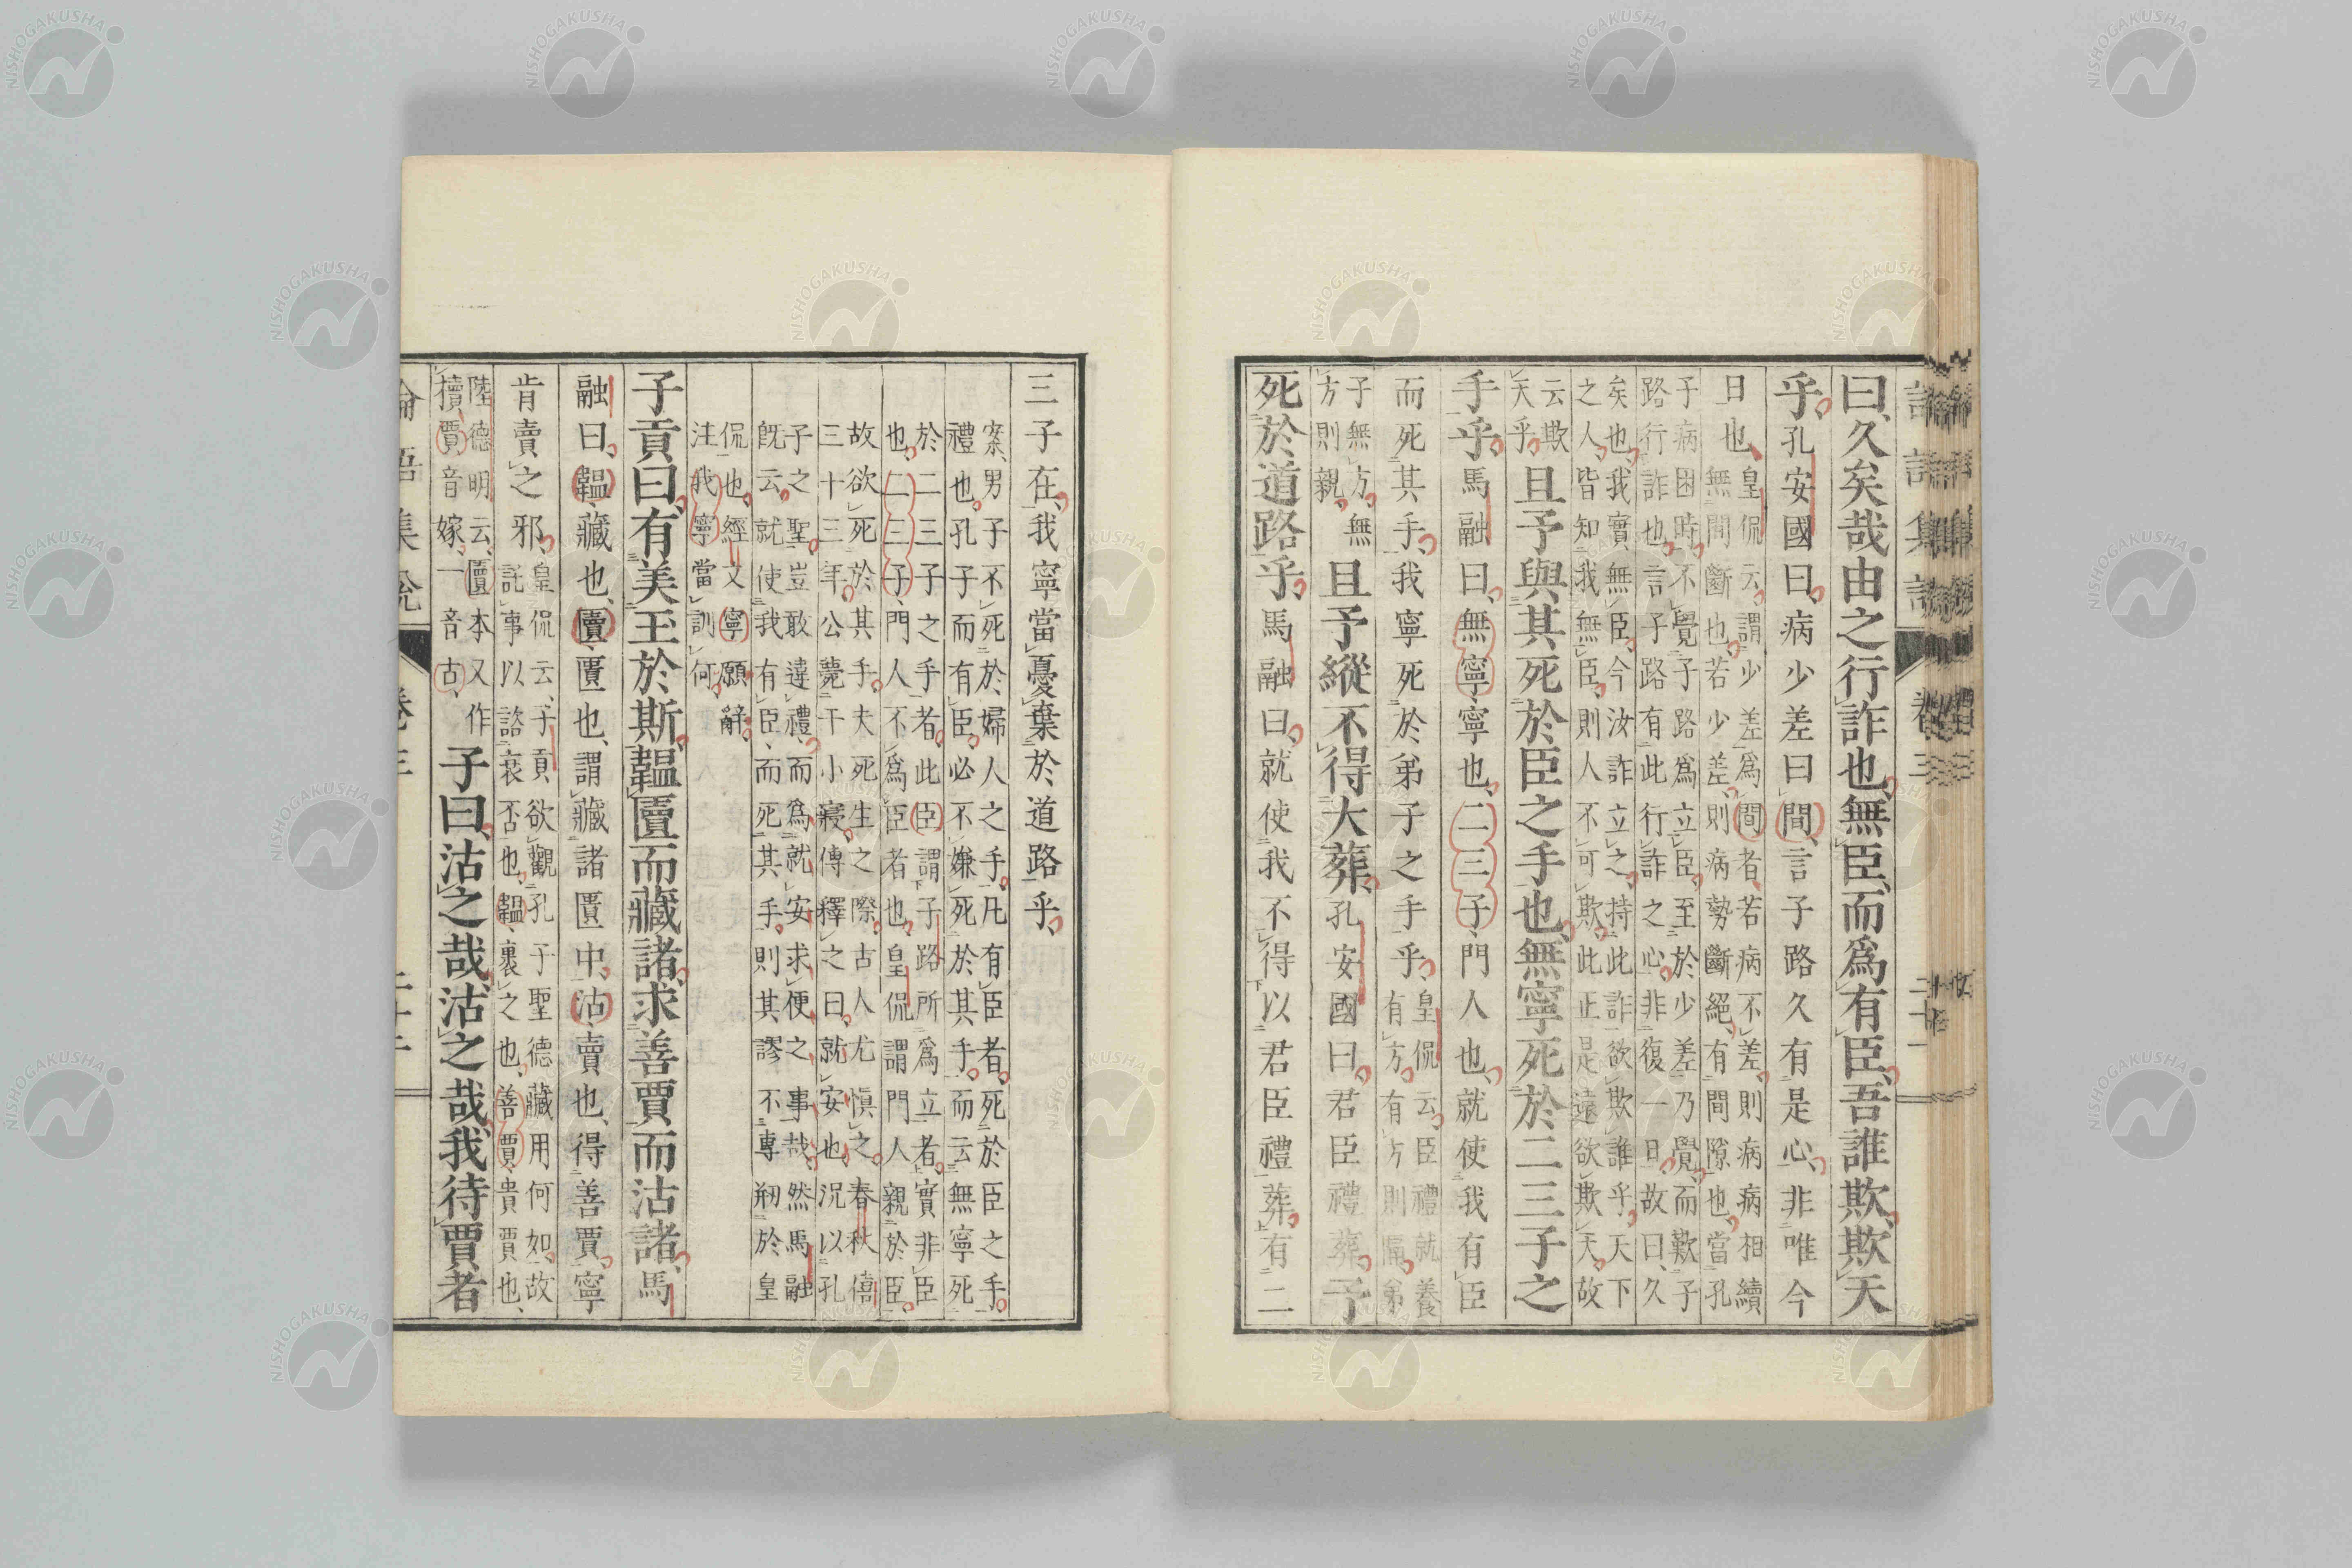 曰、久矣哉由之行詐也、無臣、而爲有臣、吾誰欺、欺天
乎、孔安國曰、病少差曰間、言子路久有是心、非唯今
日也、皇侃云、謂少差爲間者、若病不差、則病病相續
無間斷也、若少差、則病勢斷絕、有間隙也、當孔
子病困時、不覺子路爲立臣、至於少差、乃覺、而歎子
路行詐也、言子路有此行詐之心、非復一日、故曰、久
矣也、我實無臣、今汝詐立之、持此詐欲欺誰乎、天下
之人、皆知我無臣、則人不可欺、此正是遠欲欺天、故
云欺
天乎、
且予與其死於臣之手也、無寧死於二三子之
手乎、馬融曰、無寧、寧也、二三子、門人也、就使我有臣
而死其手、我寧死於弟子之手乎、
皇侃云、臣禮就養
有方、有方則隔、弟
子無方、無
方則親、
且予縱不得大葬、孔安國曰、君臣禮葬、予
死於道路乎、馬融曰、就使我不得以君臣禮葬、有二
三子在、我寧當憂棄於道路乎、
案、男子不死於婦人之手、凡有臣者、死於臣之手、
禮也、孔子而有臣、必不嫌死於其手、而云無寧死
於二三子之手者、此臣謂子路所爲立者、實非臣
也、二三子、門人不爲臣者也、皇侃謂門人親於臣、
故欲死於其手、夫死生之際、古人尤愼之、春秋僖
三十三年、公薨于小寢、傳釋之曰、就安也、況以孔
子之聖、豈敢違禮、而爲就安求便之事哉、然馬融
旣云、就使我有臣、而死其手、則其謬不專剏於皇
侃也、經文寧、願辭、
注我寧、當訓何、
子貢曰、有美玉於斯、韞匵而藏諸、求善賈而沽諸、馬
融曰、韞、藏也、匵、匱也、謂藏諸匱中、沽、賣也、得善賈、寧
肯賣之邪、
皇侃云、子貢欲觀孔子聖德藏用何如、故
託事以諮衰否也、韞、裹之也、善賈、貴賈也、
陸德明云、匵、本又作
櫝、賈、音嫁、一音古、
子曰、沽之哉、沽之哉、我待賈者